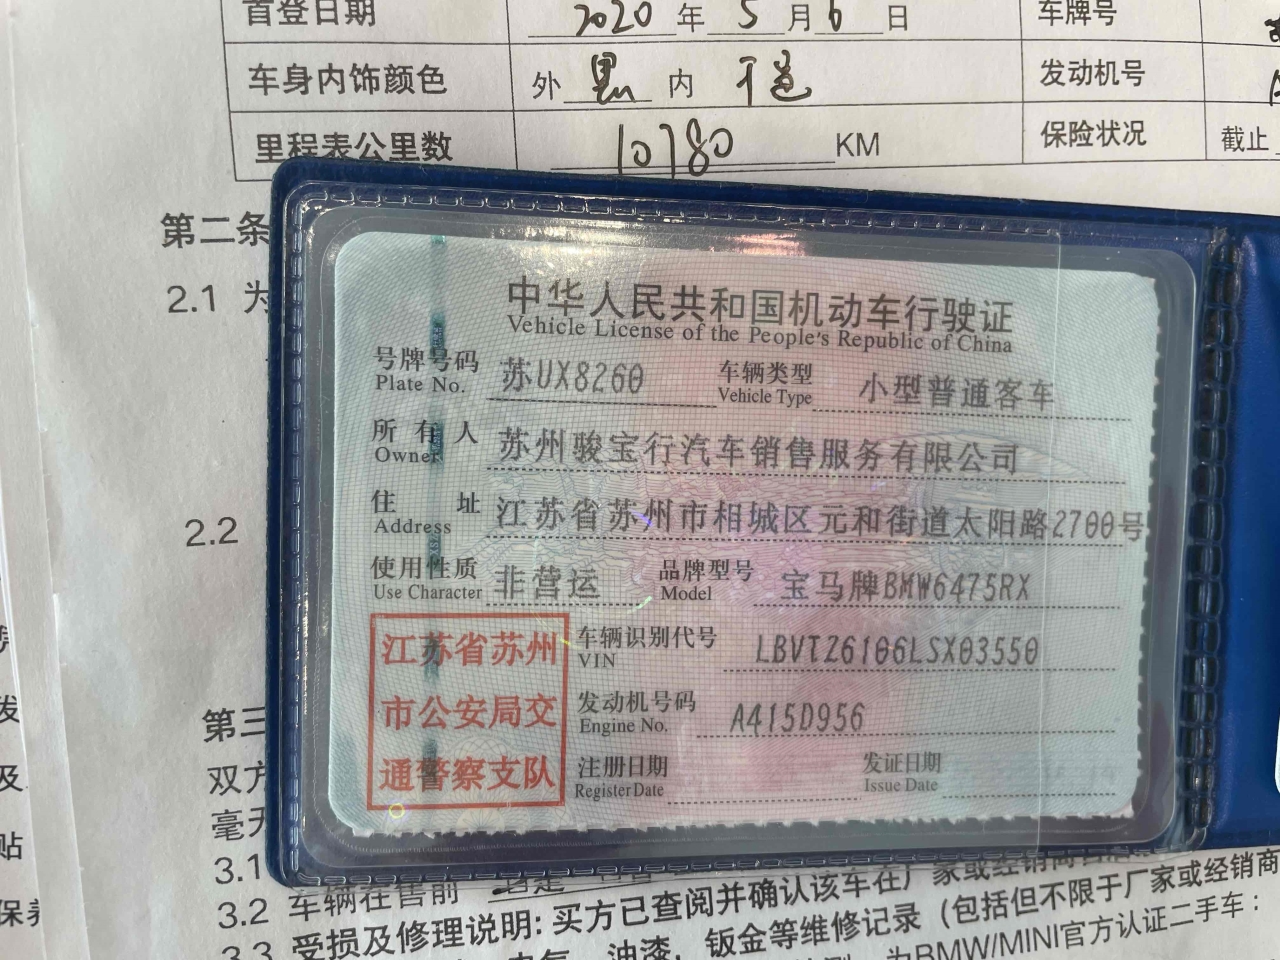 首登日期 2020 年 5 月 6 日 车牌号
车身内饰颜色 外 黑 内 发动机号
里程表公里数 10780 KM 保险状况 截止
第二条
2.1 为
2.2
中华人民共和国机动车行驶证
Vehicle License of the People's Republic of China
号牌号码 苏UX8260 车辆类型 小型普通客车
Plate No. Vehicle Type
所有人 苏州骏宝行汽车销售服务有限公司
Owner
住址 江苏省苏州市相城区元和街道太阳路2700号
Address
使用性质 非营运 品牌型号 宝马牌BMW6475RX
Use Character Model
江苏省苏州
市公安局交
通警察支队
车辆识别代号 LBVTZ6106LSX03550
VIN
发动机号码 A415D956
Engine No.
注册日期 发证日期
Register Date Issue Date
第三
双方
毫无
3.1
3.2 车辆在售前
3.3 受损及修理说明: 买方已查阅并确认该车在厂家或经销商
油漆, 钣金等维修记录 (包括但不限于厂家或经销商
为BMW/MINI官方认证二手车：
发
及
贴
保养